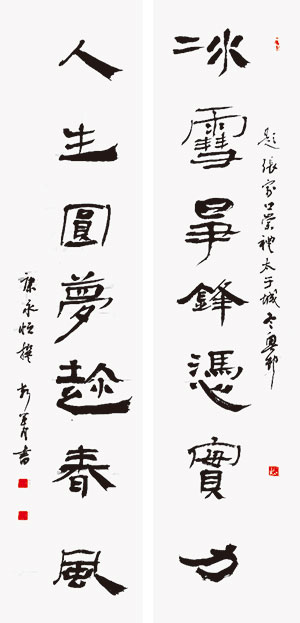 冰雪爭鋒憑實力
題張家口崇禮太子城冬奧村
人生圓夢趁春風
康永恒撰 書